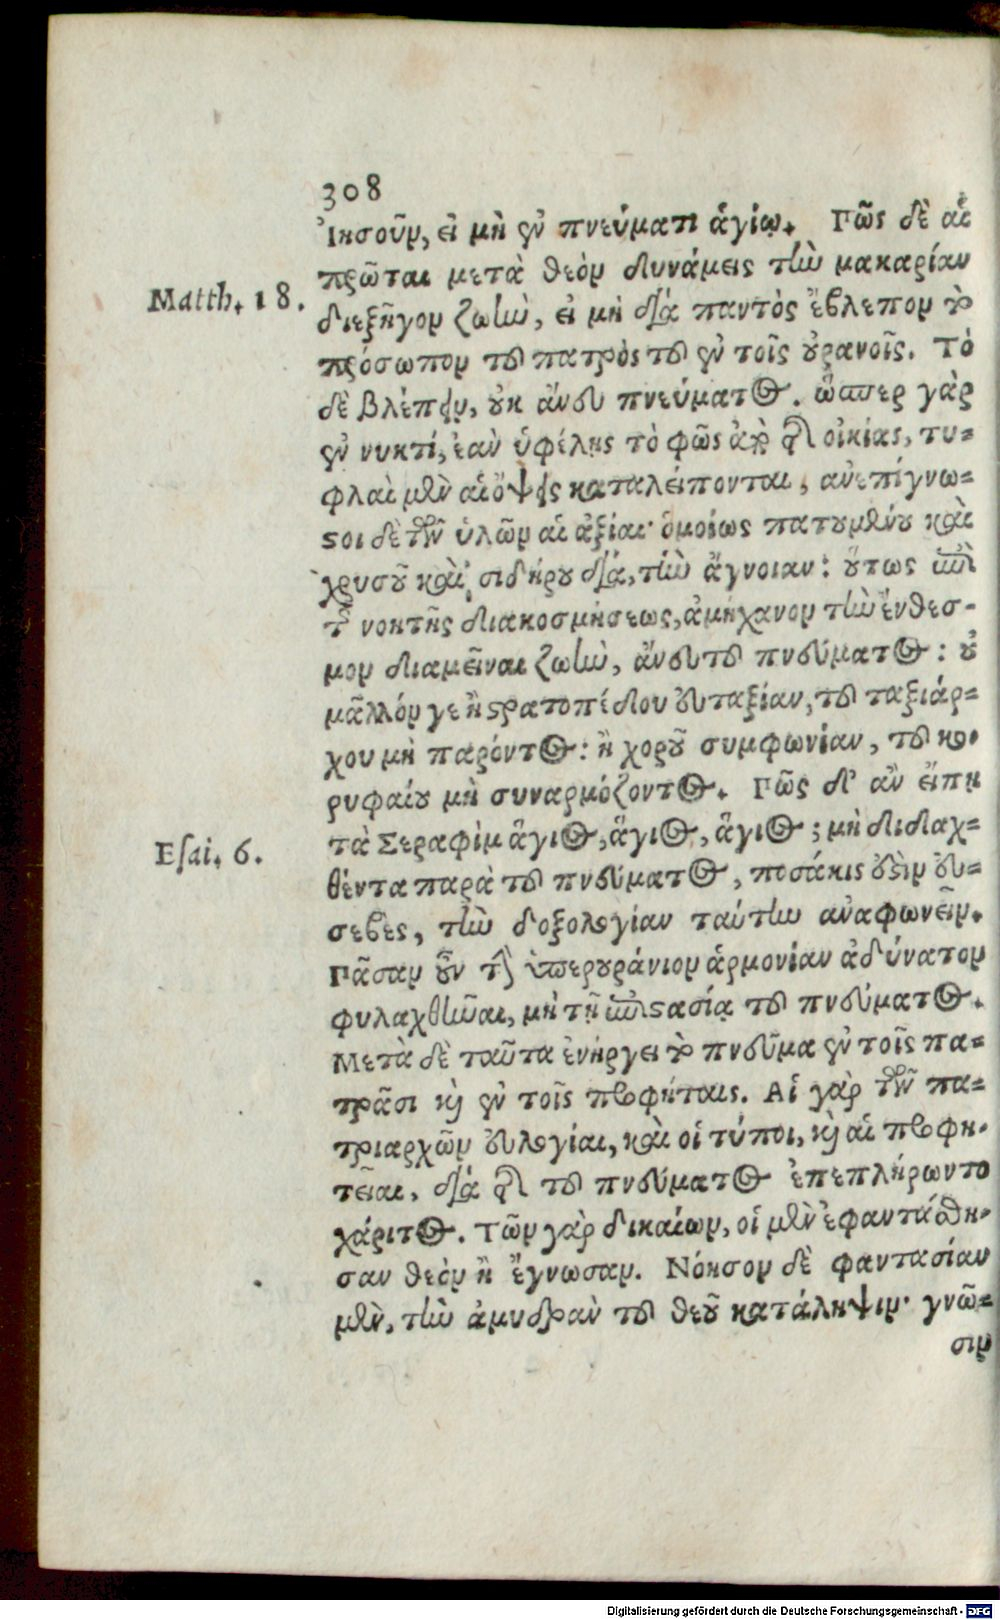 308
Ἰησοῦν, εἰ μὴ ἐν πνεύματι ἁγίῳ. Πῶς δὲ αἱ
πρῶται μετὰ θεὸν δυνάμεις τὴν μακαρίαν
Matth. 18.
διεξῆγον ζωὴν, εἰ μὴ διὰ παντὸς ἔβλεπον τὸ
πρόσωπον τοῦ πατρὸς τοῦ ἐν τοῖς οὐρανοῖς. Τὸ
δὲ βλέπειν, οὐκ ἄνευ πνεύματος. ὥσπερ γὰρ
ἐν νυκτί, ἐὰν ὑφέλῃς τὸ φῶς ἀπὸ τῆς οἰκίας, τυ-
φλαὶ μὲν αἱ ὄψεις καταλείπονται, ἀνεπίγνω-
στοι δὲ τῶν ὑλῶν αἱ ἀξίαι· ὁμοίως πατουμένου καὶ
χρυσοῦ καὶ σιδήρου διὰ, τὴν ἄγνοιαν: οὕτως ἐπὶ
τῆς νοητῆς διακοσμήσεως, ἀμήχανον τὴν ἔνθεσ-
μον διαμεῖναι ζωὴν, ἄνευ τοῦ πνεύματος: οὐ
μᾶλλόν γε ἢ στρατοπέδου εὐταξίαν, τοῦ ταξιάρ-
χου μὴ παρόντος: ἢ χοροῦ συμφωνίαν, τοῦ κο-
ρυφαίου μὴ συναρμόζοντος. Πῶς δ' ἂν εἴπῃ
Esai. 6.
τὰ Σεραφὶμ ἅγιος, ἅγιος, ἅγιος; μὴ διδαχ-
θέντα παρὰ τοῦ πνεύματος, ποσάκις οὐδὲν εὐ-
σεβὲς, τὴν δοξολογίαν ταύτην ἀναφωνεῖν.
Πᾶσαν οὖν τὴν ὑπερουράνιον ἁρμονίαν ἀδύνατον
φυλαχθῆναι, μὴ τῇ ἐπιστασίᾳ τοῦ πνεύματος.
Μετὰ δὲ ταῦτα ἐνήργει τὸ πνεῦμα ἐν τοῖς πα-
τράσι καὶ ἐν τοῖς προφήταις. Αἱ γὰρ τῶν πα-
τριαρχῶν εὐλογίαι, καὶ οἱ τύποι, καὶ αἱ προφη-
τεῖαι, διὰ τῆς τοῦ πνεύματος ἐπεπλήρωντο
χάριτος. Τῶν γὰρ δικαίων, οἱ μὲν ἐφαντάσθη-
σαν θεὸν ἢ ἔγνωσαν. Νόησον δὲ φαντασίαν
μὲν, τὴν ἀμυδρὰν τοῦ θεοῦ κατάληψιν· γνῶ-
σιν
Digitalisierung gefördert durch die Deutsche Forschungsgemeinschaft - DFG